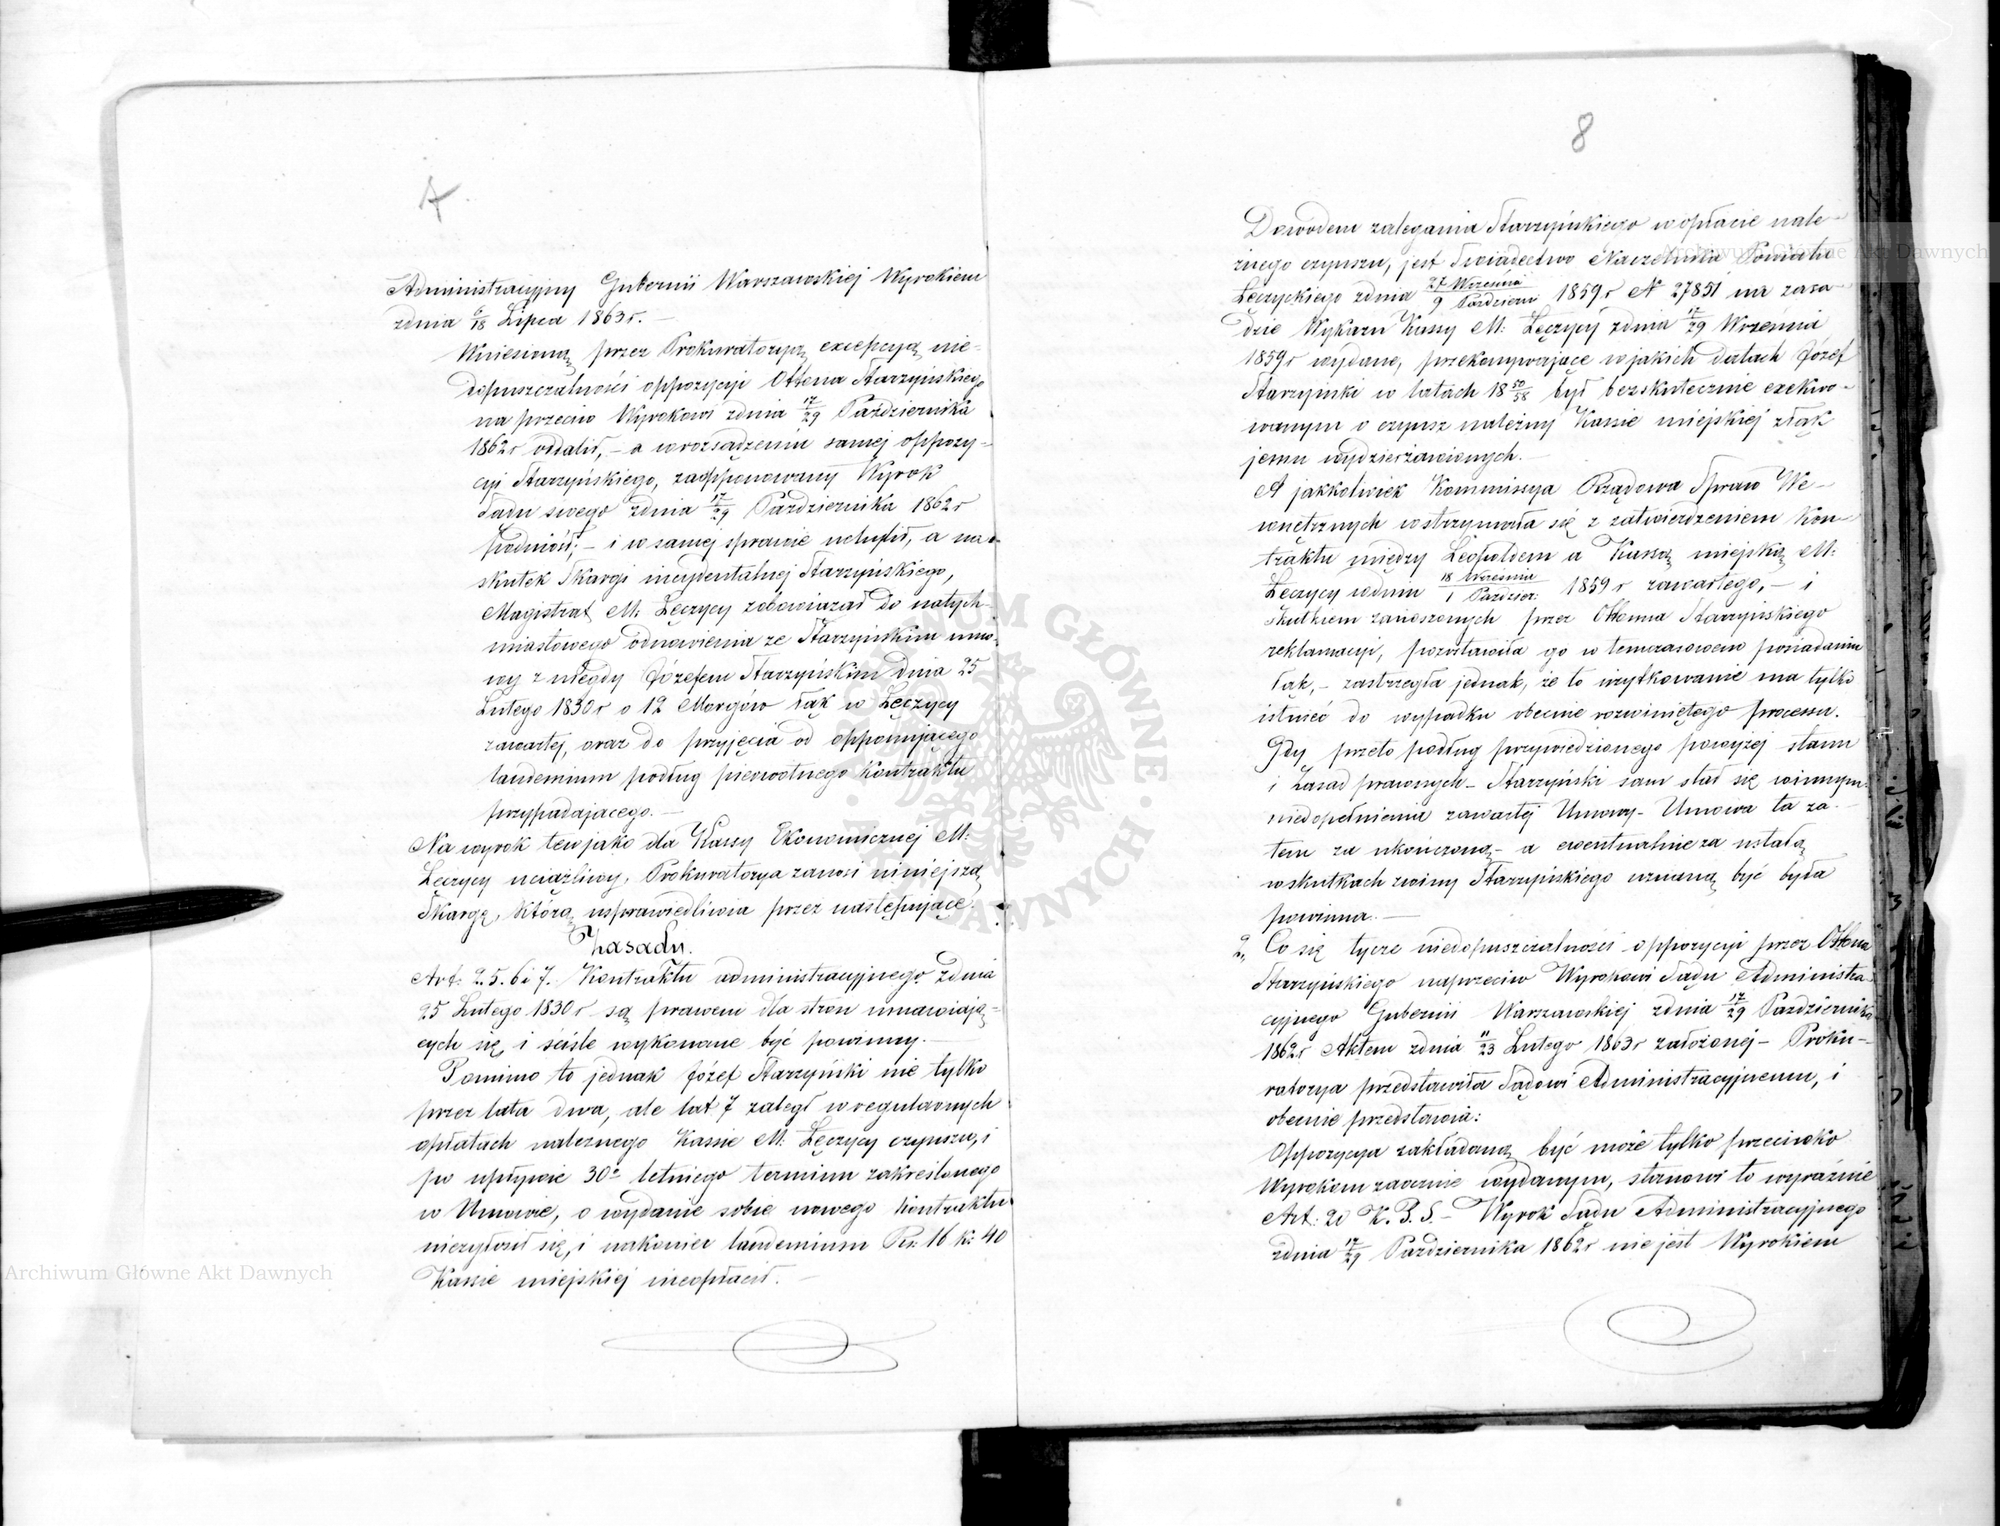 A
Administracyjny Gubernii Warszawskiej Wyrokiem
zdnia 6/18 Lipca 1863 r. —
Wniesioną przez Prokuratoryą excepcyą nie-
dopuszczalności oppozycyi Ottona Starzyńskiego
na przeciw Wyrokowi zdnia 17/29 Października
1862 r oddalił, – a w rozsądzeniu samej oppozy-
cyi Starzyńskiego, zaopponowany Wyrok
Sądu swego zdnia 17/29 Października 1862 r
podniósł; – i w samej sprawie uchylił, a na
skutek Skargi incydentalnej Starzyńskiego,
Magistrat M: Łęczycy zobowiązał do natych-
miastowego odnowienia ze Starzyńskim umo-
wy z niegdy Józefem Starzyńskim dnia 25
Lutego 1830 r o 12 Morgów łąk w Łęczycy
zawartej, oraz do przyjęcia od opponującego
laudemium podług pierwotnego Kontraktu
przypadającego. —
Na wyrok ten jako dla Kassy Ekonomicznej M:
Łęczycy uciążliwy, Prokuratorya zanosi niniejszą
Skargę, którą usprawiedliwia przez następujące:
Zasady.
Art: 2. 5. 6 i 7. Kontraktu administracyjnego zdnia
25 Lutego 1830 r są prawem dla stron umawiają-
cych się i ściśle wykonane być powinny. —
Pomimo to jednak Józef Starzyński nie tylko
przez lata dwa, ale lat 7 zaległ w regularnych
opłatach należnego Kassie M: Łęczycy czynszu, i
po upływie 30o letniego terminu zakreślonego
w Umowie, o wydanie sobie nowego Kontraktu
niezgłosił się, i nakoniec laudemium Rs: 16 k: 40
Kassie miejskiej nieopłacił. —
8
Dowodem zalegania Starzyńskiego w opłacie nale-
żnego czynszu, jest Świadectwo Naczelnika Powiatu
Łęczyckiego zdnia 27 Września/9 Paździer: 1859 r N 27851 na zasa-
dzie Wykazu Kassy M: Łęczycy zdnia 17/29 Września
1859 r wydane, przekonywające w jakich datach Józef
Starzyński w latach 18 50/58 był bezskutecznie exekwo-
wanym o czynsz należny Kassie miejskiej złąk
jemu wydzierżawionych. —
A jakkolwiek Kommissya Rządowa Spraw We-
wnętrznych wstrzymała się z zatwierdzeniem Kon-
traktu między Leopoldem a Kassą miejską M:
Łęczycy wdniu 18 Września/1 Paździer: 1859 r zawartego, – i
skutkiem zanoszonych przez Ottona Starzyńskiego
reklamacyi, pozostawiła go w temczasowem posiadaniu
łąk, – zastrzegła jednak, że to użytkowanie ma tylko
istnieć do wypadku obecnie rozwiniętego processu.
Gdy przeto podług przywiedzionego powyżej stanu
i Zasad prawnych – Starzyński sam stał się winnym
niedopełnienia zawartej Umowy – Umowa ta za-
tem za ukończoną – a ewentualnie za ustałą
w skutkach zwiny Starzyńskiego uznaną być była
powinna. —
2. Co się tycze niedopuszczalności oppozycyi przez Ottona
Starzyńskiego naprzeciw Wyrokowi Sądu Administra-
cyjnego Gubernii Warszawskiej zdnia 17/29 Październik:
1862 r Aktem zdnia 11/23 Lutego 1863 r założonej – Proku-
ratorya przedstawiła Sądowi Administracyjnemu, i
obecnie przedstawia:
Oppozycya zakładaną być może tylko przeciwko
Wyrokom zaocznie wydanym, stanowi to wyraźnie
Art: 20 K. P. S. – Wyrok Sądu Administracyjnego
zdnia 17/29 Października 1862 r nie jest Wyrokiem
Archiwum Główne Akt Dawnych
Archiwum Główne Akt Dawnych
ARCHIWUM GŁÓWNE AKT DAWNYCH